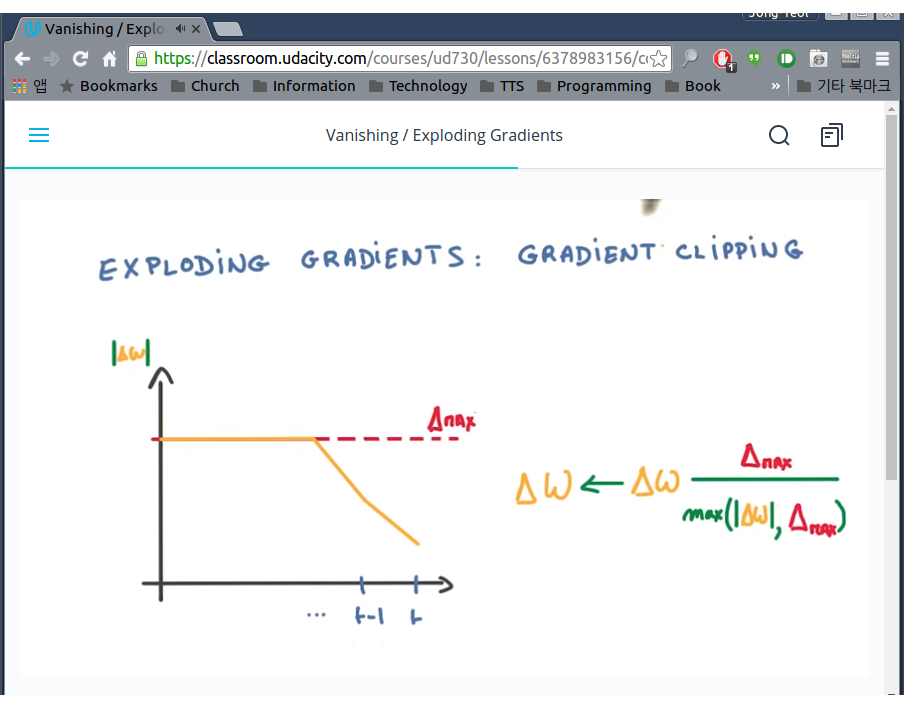 Jong Yeol
Vanishing / Explo
https://classroom.udacity.com/courses/ud730/lessons/6378983156/c
앱 Bookmarks Church Information Technology TTS Programming Book » 기타 북마크
Vanishing / Exploding Gradients
EXPLODING GRADIENTS: GRADIENT CLIPPING
|Δω|
Δmax
ΔW ← Δω Δmax
max(|Δω|, Δmax)
... t-1 t